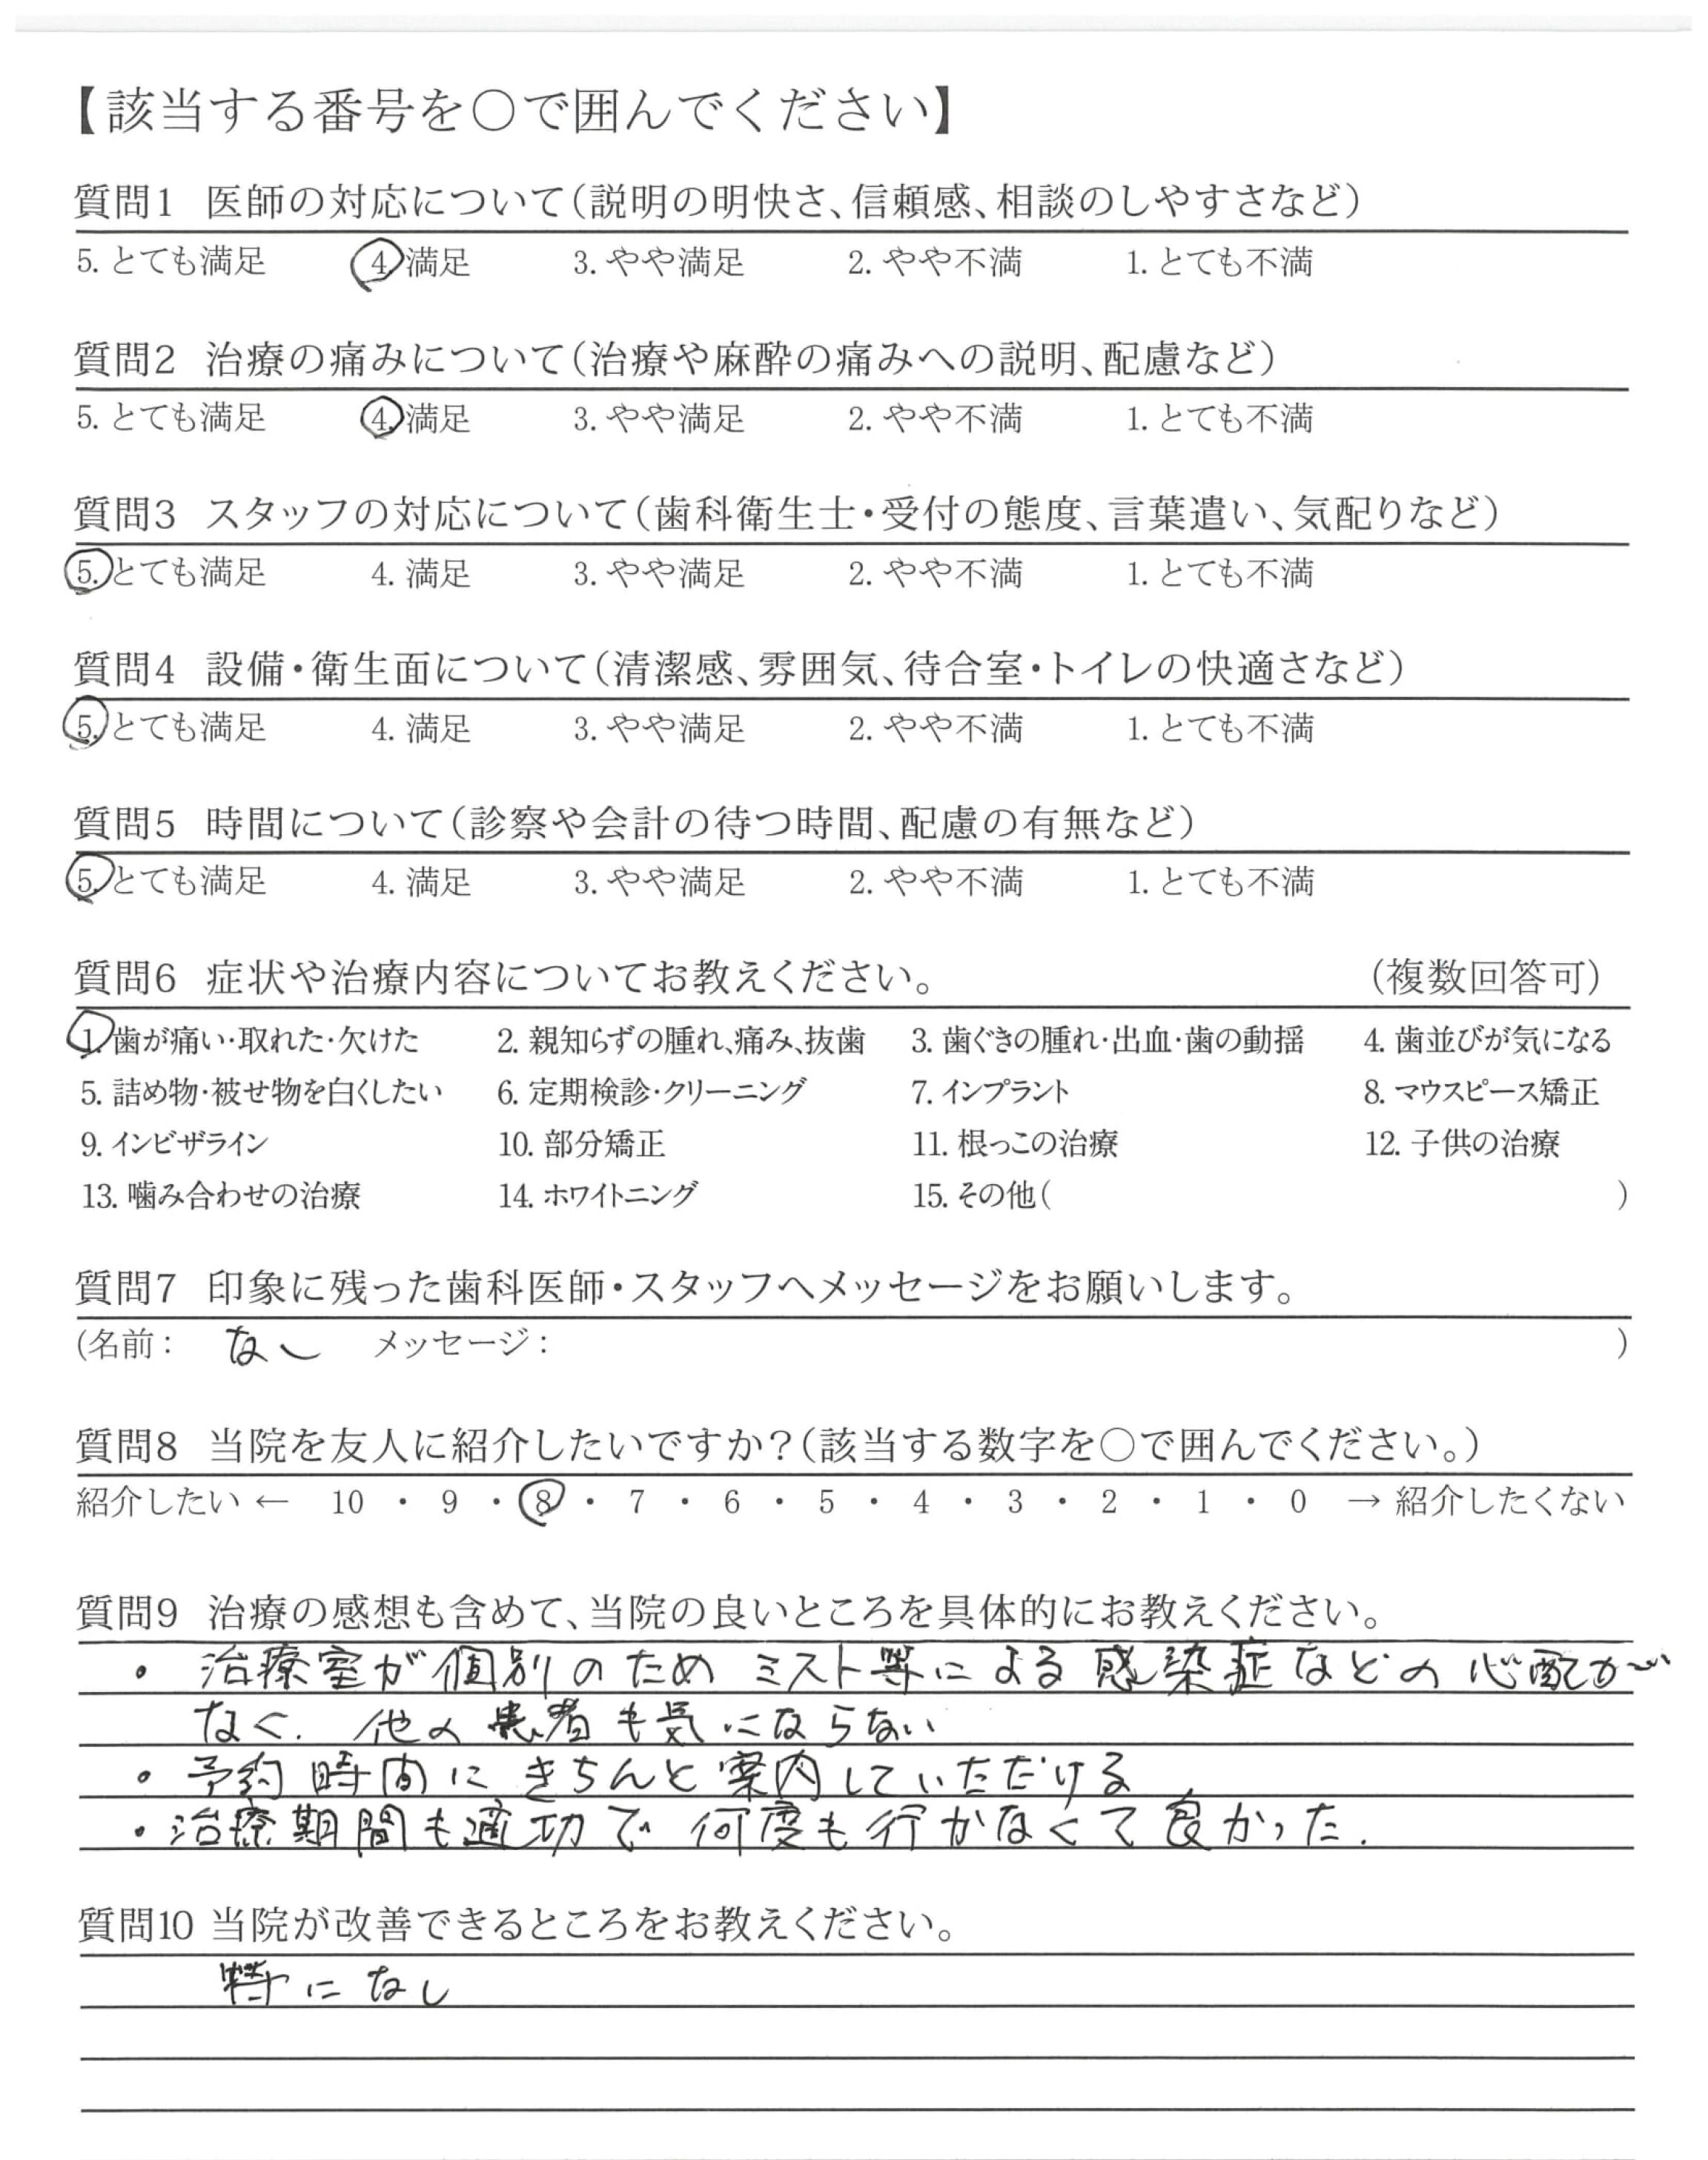 【該当する番号を○で囲んでください】
質問1 医師の対応について(説明の明快さ、信頼感、相談のしやすさなど)
5. とても満足 4. 満足 3. やや満足 2. やや不満 1. とても不満
質問2 治療の痛みについて(治療や麻酔の痛みへの説明、配慮など)
5. とても満足 4. 満足 3. やや満足 2. やや不満 1. とても不満
質問3 スタッフの対応について(歯科衛生士・受付の態度、言葉遣い、気配りなど)
5. とても満足 4. 満足 3. やや満足 2. やや不満 1. とても不満
質問4 設備・衛生面について(清潔感、雰囲気、待合室・トイレの快適さなど)
5. とても満足 4. 満足 3. やや満足 2. やや不満 1. とても不満
質問5 時間について(診察や会計の待つ時間、配慮の有無など)
5. とても満足 4. 満足 3. やや満足 2. やや不満 1. とても不満
質問6 症状や治療内容についてお教えください。 (複数回答可)
1. 歯が痛い・取れた・欠けた 2. 親知らずの腫れ、痛み、抜歯 3. 歯ぐきの腫れ・出血・歯の動揺 4. 歯並びが気になる
5. 詰め物・被せ物を白くしたい 6. 定期検診・クリーニング 7. インプラント 8. マウスピース矯正
9. インビザライン 10. 部分矯正 11. 根っこの治療 12. 子供の治療
13. 噛み合わせの治療 14. ホワイトニング 15. その他( )
質問7 印象に残った歯科医師・スタッフへメッセージをお願いします。
(名前: なし メッセージ: )
質問8 当院を友人に紹介したいですか?(該当する数字を○で囲んでください。)
紹介したい ← 10 ・ 9 ・ 8 ・ 7 ・ 6 ・ 5 ・ 4 ・ 3 ・ 2 ・ 1 ・ 0 → 紹介したくない
質問9 治療の感想も含めて、当院の良いところを具体的にお教えください。
・治療室が個別のためミスト等による感染症などの心配が
なく. 他の患者も気にならない
・予約時間にきちんと案内していただける
・治療期間も適切で何度も行かなくて良かった.
質問10 当院が改善できるところをお教えください。
特になし